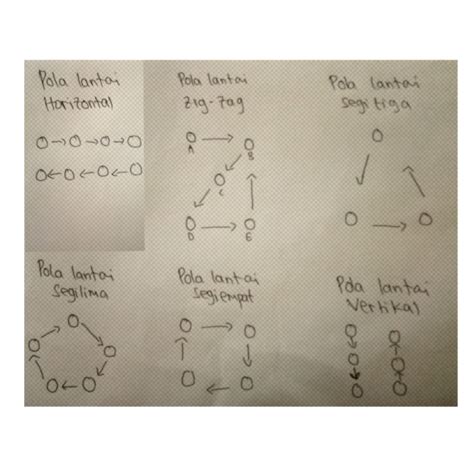 Pola lantai
Horizontal
Pola lantai
Zig-Zag
A
B
C
D
E
Pola lantai
segitiga
Pola lantai
Segilima
Pola lantai
Segiempat
Pola lantai
Vertikal